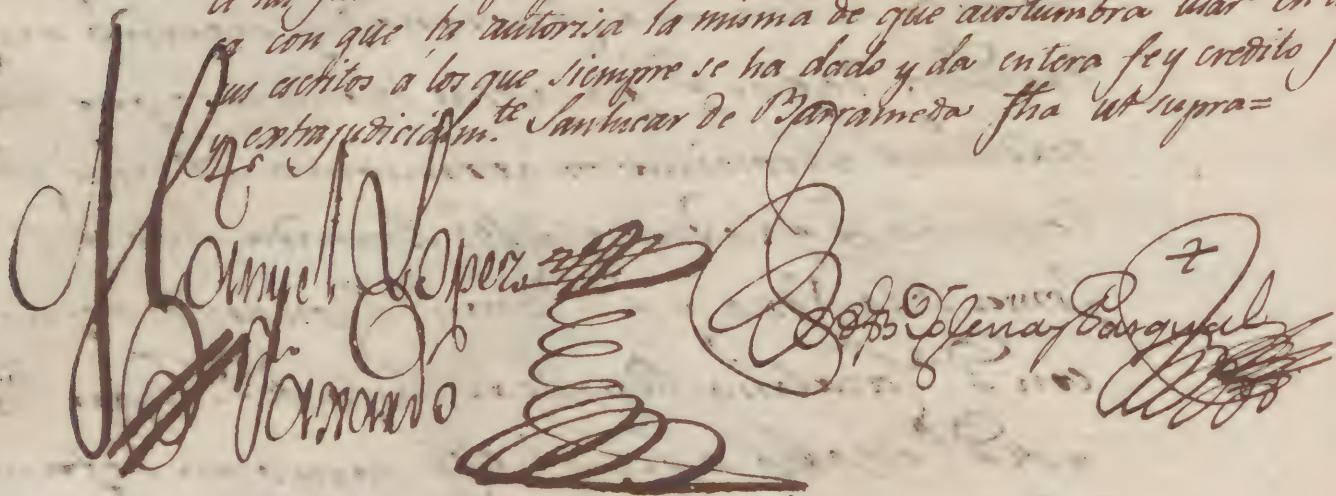 con que la autorisa la misma de que acostumbra usar en
sus escritos a los que siempre se ha dado y da entera fe y credito
y extrajudicialm.te Sanlucar de Barrameda fha ut supra=
Manuel Lopez
Pasqual